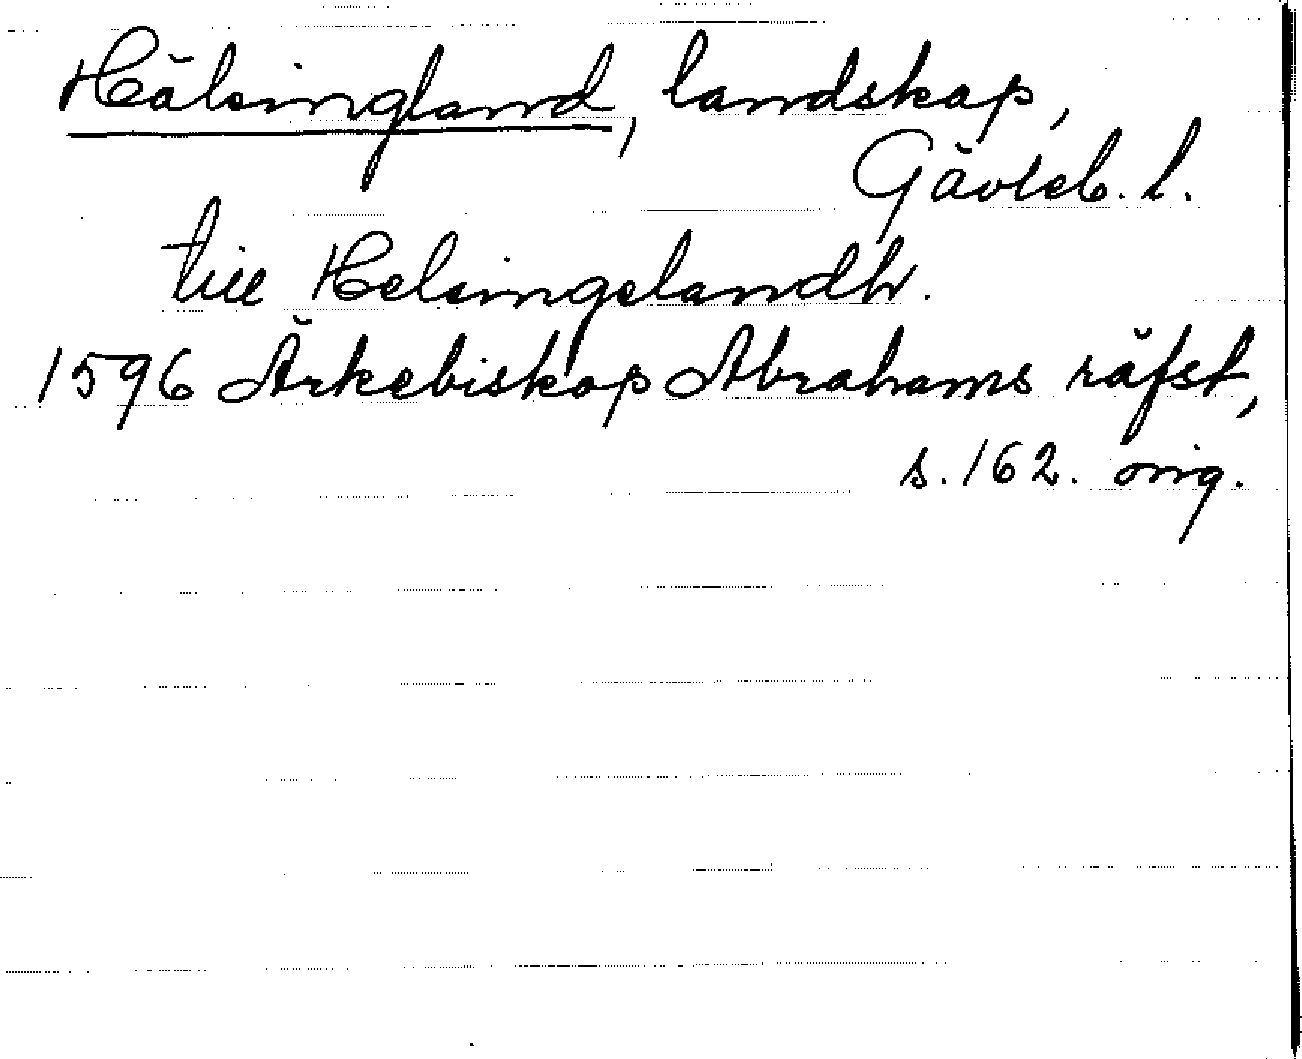 Hälsingland, landskap,
Gävleb. l.
till Helsingelandh.
1596 Ärkebiskop Abrahams räfst,
s. 162. orig.